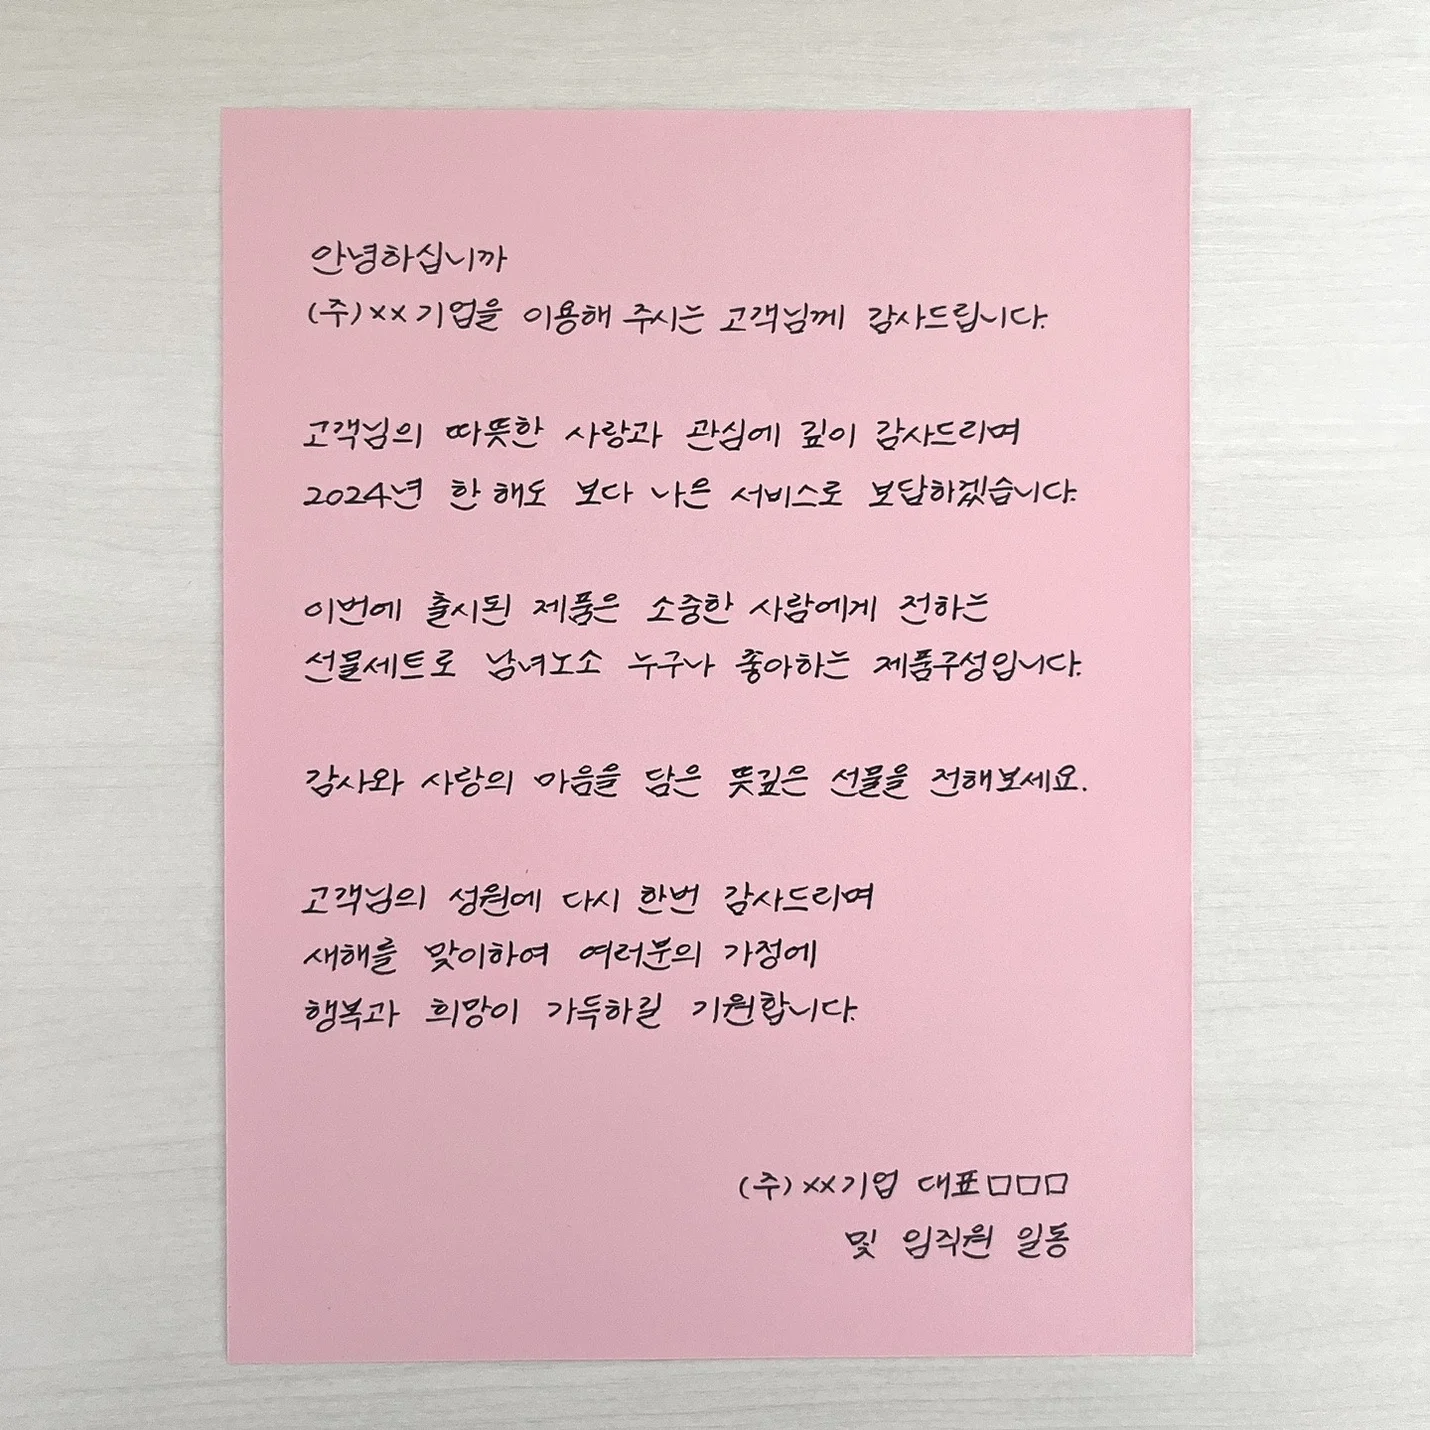 안녕하십니까
(주)××기업을 이용해 주시는 고객님께 감사드립니다.
고객님의 따뜻한 사랑과 관심에 깊이 감사드리며
2024년 한 해도 보다 나은 서비스로 보답하겠습니다.
이번에 출시된 제품은 소중한 사람에게 전하는
선물세트로 남녀노소 누구나 좋아하는 제품구성입니다.
감사와 사랑의 마음을 담은 뜻깊은 선물을 전해보세요.
고객님의 성원에 다시 한번 감사드리며
새해를 맞이하여 여러분의 가정에
행복과 희망이 가득하길 기원합니다.
(주)××기업 대표□□□
및 임직원 일동